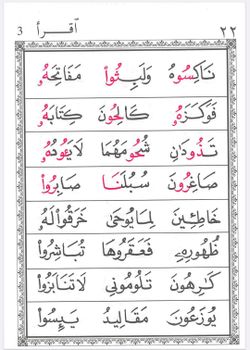 ٢٢ اقرأ 3
نَاكِسُوهُ وَلَبِثُوا۟ مَفَاتِحَهُۥ
فَوَكَزَهُۥ كَالِحُونَ كِتَابَهُۥ
تَذُودَانِ شُحُومَهُمَا لَا يَـُٔودُهُۥ
صَاغِرُونَ سُبُلَنَا صَابِرُوا۟
خَاطِـِٔينَ لِمَا يُوحَىٰ خَرَقُوا۟ لَهُۥ
ظُهُورِهِۦ فَعَقَرُوهَا تُبَاشِرُوا۟
كَٰرِهُونَ تَلُومُونِي لَا تَنَابَزُوا۟
يُوزَعُونَ مَقَالِيدُ يَئِسُوا۟